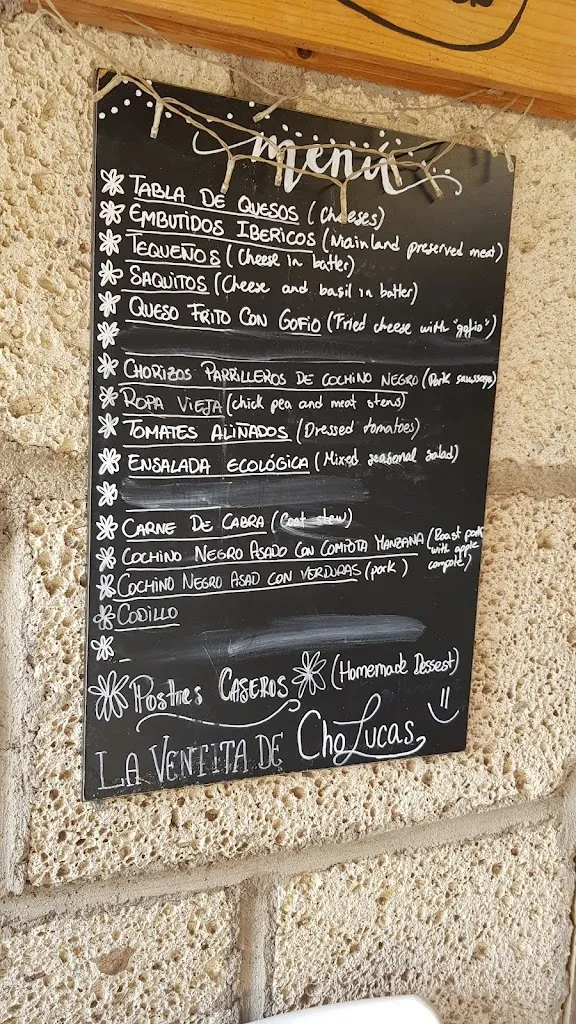 menú
TABLA DE QUESOS (Cheeses)
EMBUTIDOS IBERICOS (Mainland preserved meat)
TEQUEÑOS (Cheese in batter)
SAQUITOS (Cheese and basil in batter)
QUESO FRITO CON GOFIO (Fried cheese with "gofio")
CHORIZOS PARRILLEROS DE COCHINO NEGRO (Pork
ROPA VIEJA (chick pea and meat stews)
TOMATES ALIÑADOS (Dressed tomatoes)
ENSALADA ECOLÓGICA (Mixed seasonal salad)
CARNE DE CABRA (Goat stew)
COCHINO NEGRO ASADO CON COMPOTA MANZANA (Roast pork with apple compote)
COCHINO NEGRO ASAD CON VERDURAS (pork)
CODILLO
POSTRES CASEROS (Homemade Dessest)
LA VENTITA DE ChoLucas